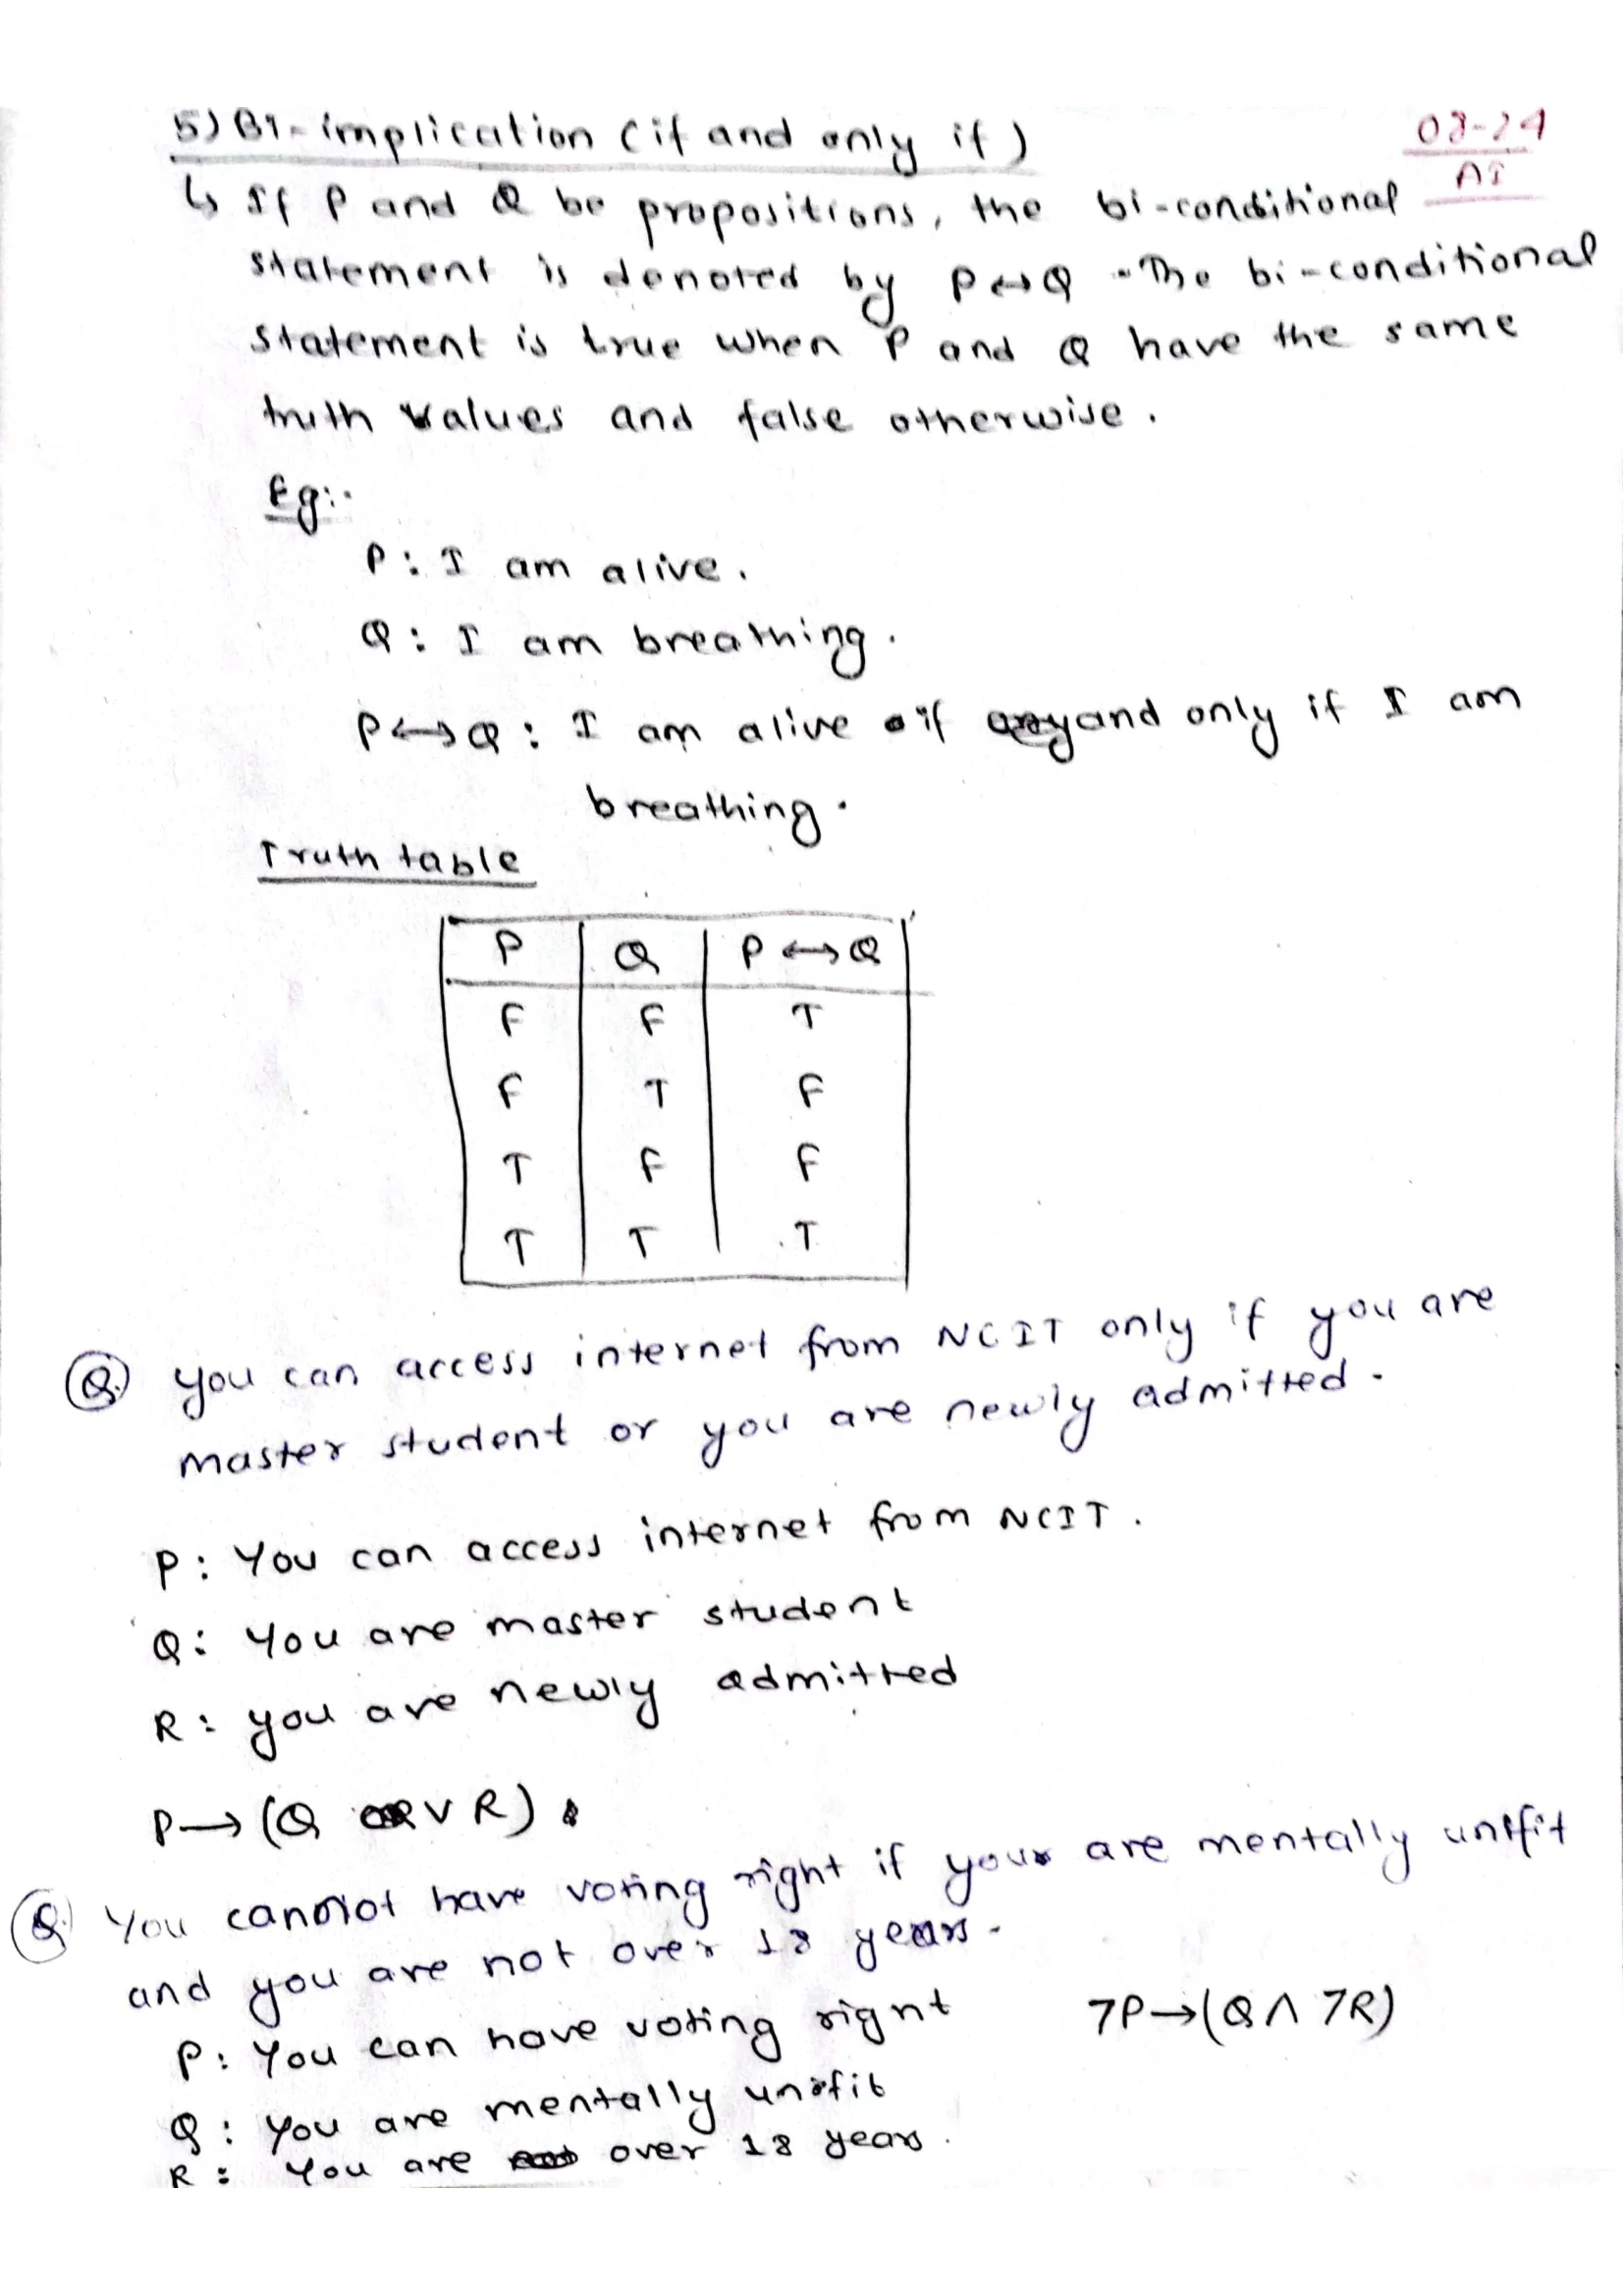 5) Bi-implication (if and only if)
08-24
AI
↳ If P and Q be propositions, the bi-conditional
statement is denoted by P↔Q. The bi-conditional
statement is true when P and Q have the same
truth values and false otherwise.
Eg:-
P: I am alive.
Q: I am breathing.
P↔Q: I am alive if and only if I am
breathing.
Truth table
P Q P↔Q
F F T
F T F
T F F
T T T
Q. you can access internet from NCIT only if you are
master student or you are newly admitted.
P: You can access internet from NCIT.
Q: You are master student
R: you are newly admitted
P→(Q ∨ R)
Q. You cannot have voting right if you are mentally unfit
and you are not over 18 years.
P: You can have voting right
¬P→(Q∧¬R)
Q: You are mentally unfit
R: You are over 18 years.